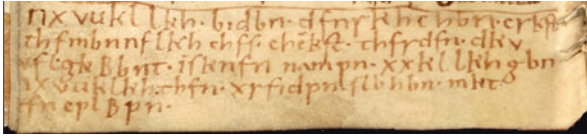 nx vukllkh· bidbn· dfnrkhchbn· crkst
thfmbnnflkhchfs· chenkst· thfrdfn· dkv
vfl·gkbbnt· ïskenfn nampn· xxkllkh gbn
nx vukllkh·thfn· xrfidpn· slbhbn· mktt
fn cplbpn·